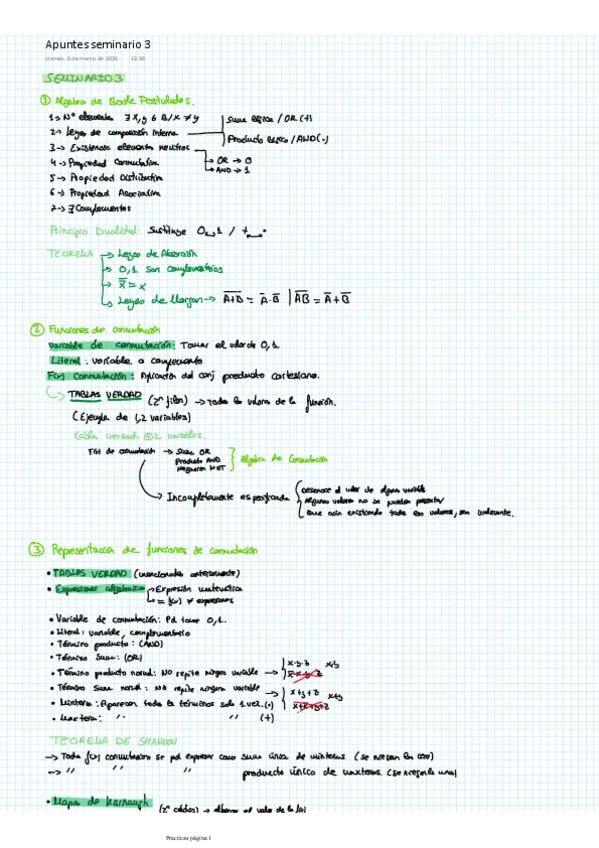 Apuntes seminario 3
viernes, 6 de marzo de 2026 12:30
SEMINARIO 3
① Algebra de Boole Postulados.
1-> Nº elementos ∃ x, y ∈ B / x ≠ y
2-> Leyes de composición interna
Suma lógica / OR (+)
Producto lógico / AND (·)
3-> Existencia elementos neutros
OR -> 0
AND -> 1
4-> Propiedad Conmutativa
5-> Propiedad Distributiva
6-> Propiedad Asociativa
7-> ∃ Complementos
Principio Dualidad: Sustituye 0↔1 / +↔·
TEOREMA -> Leyes de Absorción
-> 0, 1 son complementarios
-> x̿ = x
-> Leyes de Morgan -> A̅+̅B̅ = A̅·B̅ | A̅B̅ = A̅+B̅
② Funciones de conmutación
variable de conmutación: Tomar el valor de 0,1.
Literal: variable o complemento
F(x) Conmutación: Aplicación del conj producto cartesiano.
-> TABLAS VERDAD (2ⁿ filas) -> todos los valores de la función.
(Ejemplo de 1,2 variables)
Tabla verdad 2 variables.
F(x) de conmutación -> Suma OR
Producto AND
Negación NOT
Algebra de Conmutación
Incompletamente especificada
Desconoce el valor de alguna variable
Algunos valores no se pueden presentar
Que aún existiendo todos los valores, sea indiferente.
③ Representación de funciones de conmutación
• TABLAS VERDAD (mencionadas anteriormente)
• Expresiones algebraicas -> Expresión matemática
-> = f(x) ≠ expresiones
• Variable de conmutación: Pd tomar 0,1.
• Literal: variable, complementario
• Término producto: (AND)
• Término Suma: (OR)
• Término producto normal: NO repite ningún variable -> x·y·z
• Término suma normal: NO repite ningún variable -> x+y+z
• Mintérm: Aparecen todos los términos solo 1 vez. (·)
• Maxterm: " " " (+)
TEOREMA DE SHANNON
-> Toda f(x) conmutación se pd expresar como suma única de minterms (se niegan los cero)
-> " " " producto único de maxterms (se niegan los uno)
• Mapa de Karnaugh (2ⁿ celdas) -> el valor de la f(x)
Practicas página 1